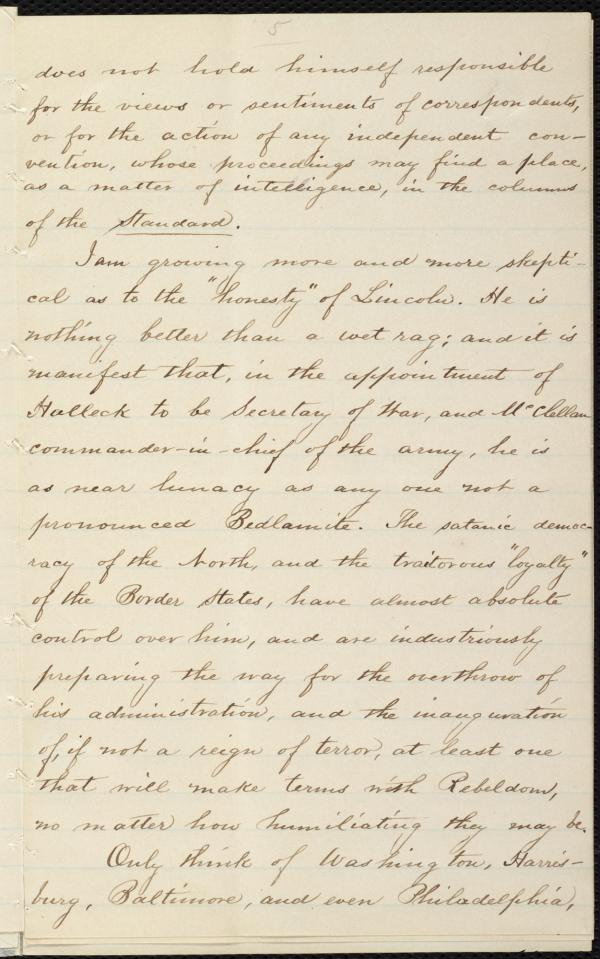 5
does not hold himself responsible
for the views or sentiments of correspondents,
or for the action of any independent con-
vention, whose proceedings may find a place,
as a matter of intelligence, in the columns
of the Standard.
I am growing more and more skepti-
cal as to the "honesty" of Lincoln. He is
nothing better than a wet rag; and it is
manifest that, in the appointment of
Halleck to be Secretary of War, and McClellan
commander-in-chief of the army, he is
as near lunacy as any one not a
pronounced Bedlamite. The satanic democ-
racy of the North, and the traitorous "loyalty"
of the Border States, have almost absolute
control over him, and are industriously
preparing the way for the overthrow of
his administration, and the inauguration
of, if not a reign of terror, at least one
that will make terms with Rebeldom,
no matter how humiliating they may be.
Only think of Washington, Harris-
burg, Baltimore, and even Philadelphia,